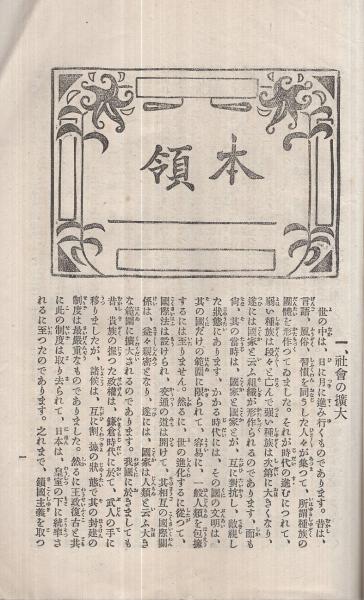 本領
一、社會の擴大
世の中は、日に月に進み行くものであります。昔は、
言語、風俗、習慣を同うした人々が集つて、所謂種族の
團體を形作つてゐました。それが時代の進むにつれて、
弱い種族は段々と亡んで强い種族は次第に大きくなり、
遂には國家と云ふ組織が形作られるのであります、而も
尙、其の當時は、國家と國家とが、互に對抗し、敵視し
た狀態にあります。かかる時代には、その國の文明は、
其の國だけの範圍に限られて、容易に、一般人類を包擁
するには至りません。然るに、世の進化するに從つて、
國際法は設けられ、交通の道は開けて、其相互の國際關
係は、益々親密となり、遂には、國家は人類と云ふ大き
な範圍に擴大されるのであります。我國に於きましても
昔、貴族の握つた政權は、鎌倉時代にて、武人の手に
移りましたが、諸侯は、互に割據の狀態で其の封建の
制度は最嚴重なものでありました。然るに王政復古と共
に此の制度は取り去られて、日本は、皇室の下に統率さ
れるに至つたのであります。之れまで、鎖國主義を取つ
一